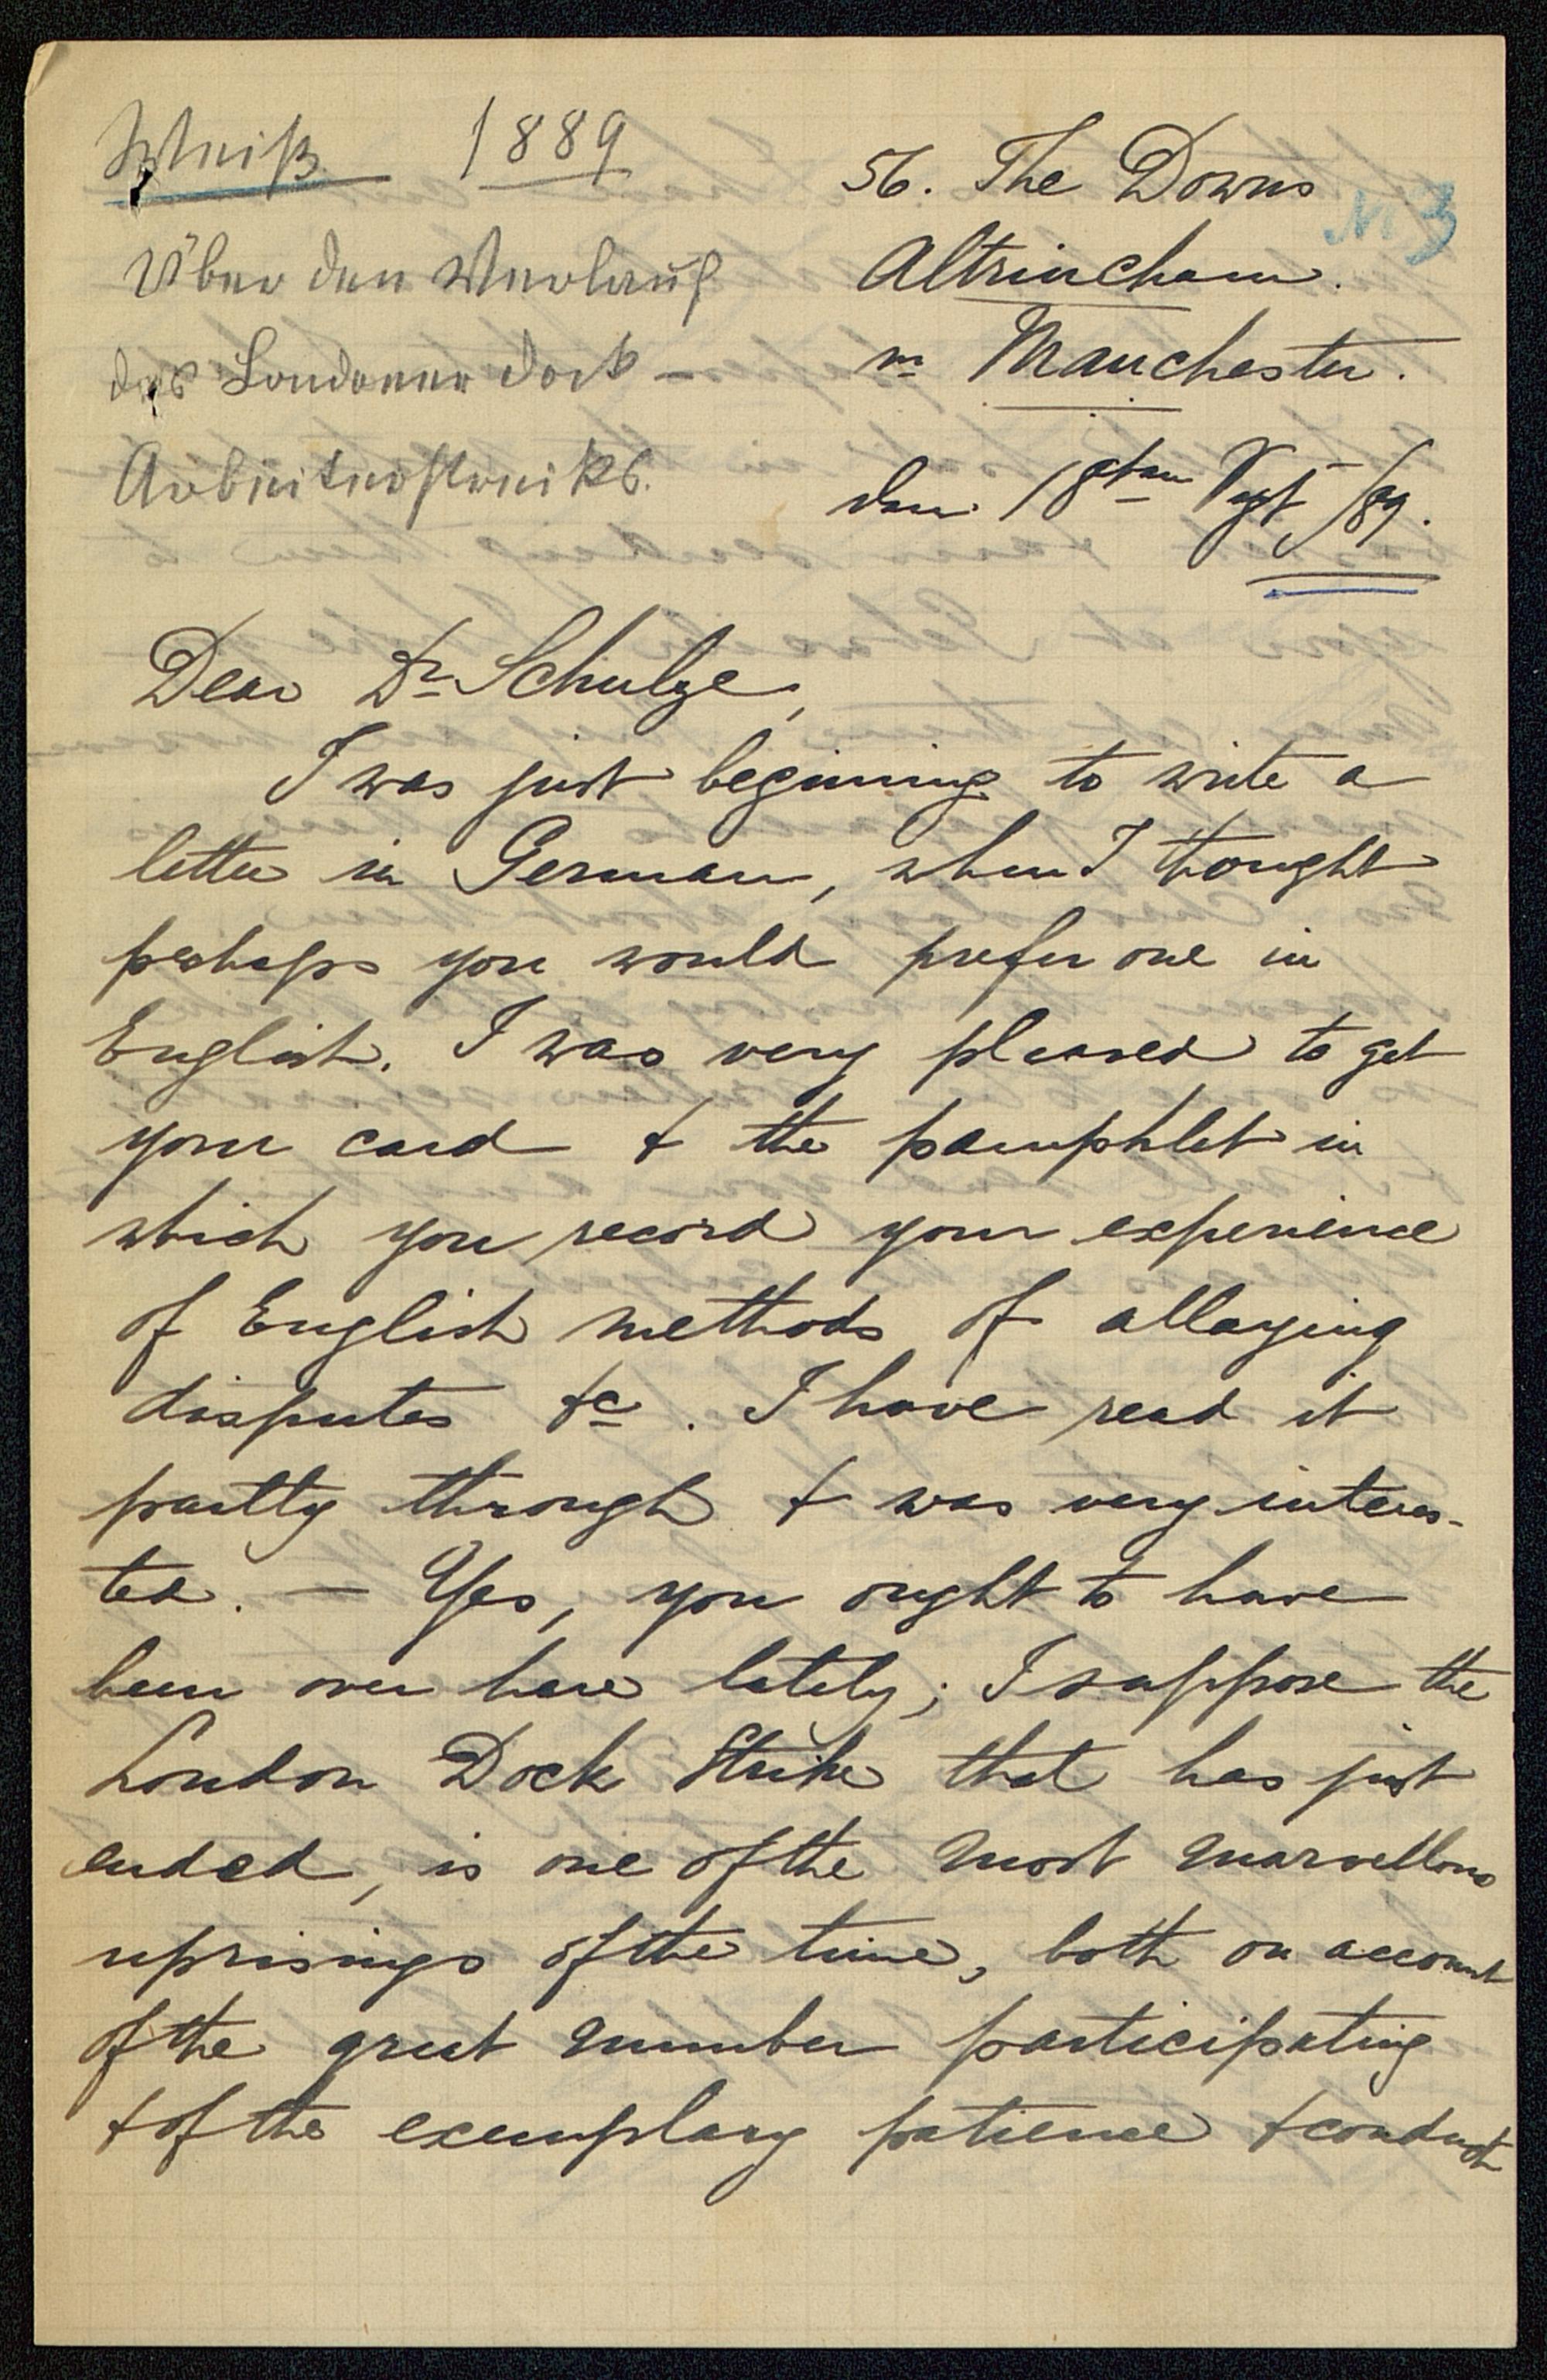 1889
Über den Verlauf
des Londoner Dock-
Arbeiterstreiks.
56. The Downs
Altrincham.
nr Manchester.
den 18ten Sept /89.
Dear Dr Schulze,
I was just beginning to write a
letter in German, when I thought
perhaps you would prefer one in
English. I was very pleased to get
your card & the pamphlet in
which you record your experience
of English methods of allaying
disputes &c. I have read it
partly through & was very interes-
ted. — Yes, you ought to have
been over here lately; I suppose the
London Dock Strike that has just
ended, is one of the most marvellous
uprisings of the time, both on account
of the great number participating
& of the exemplary patience & conduct